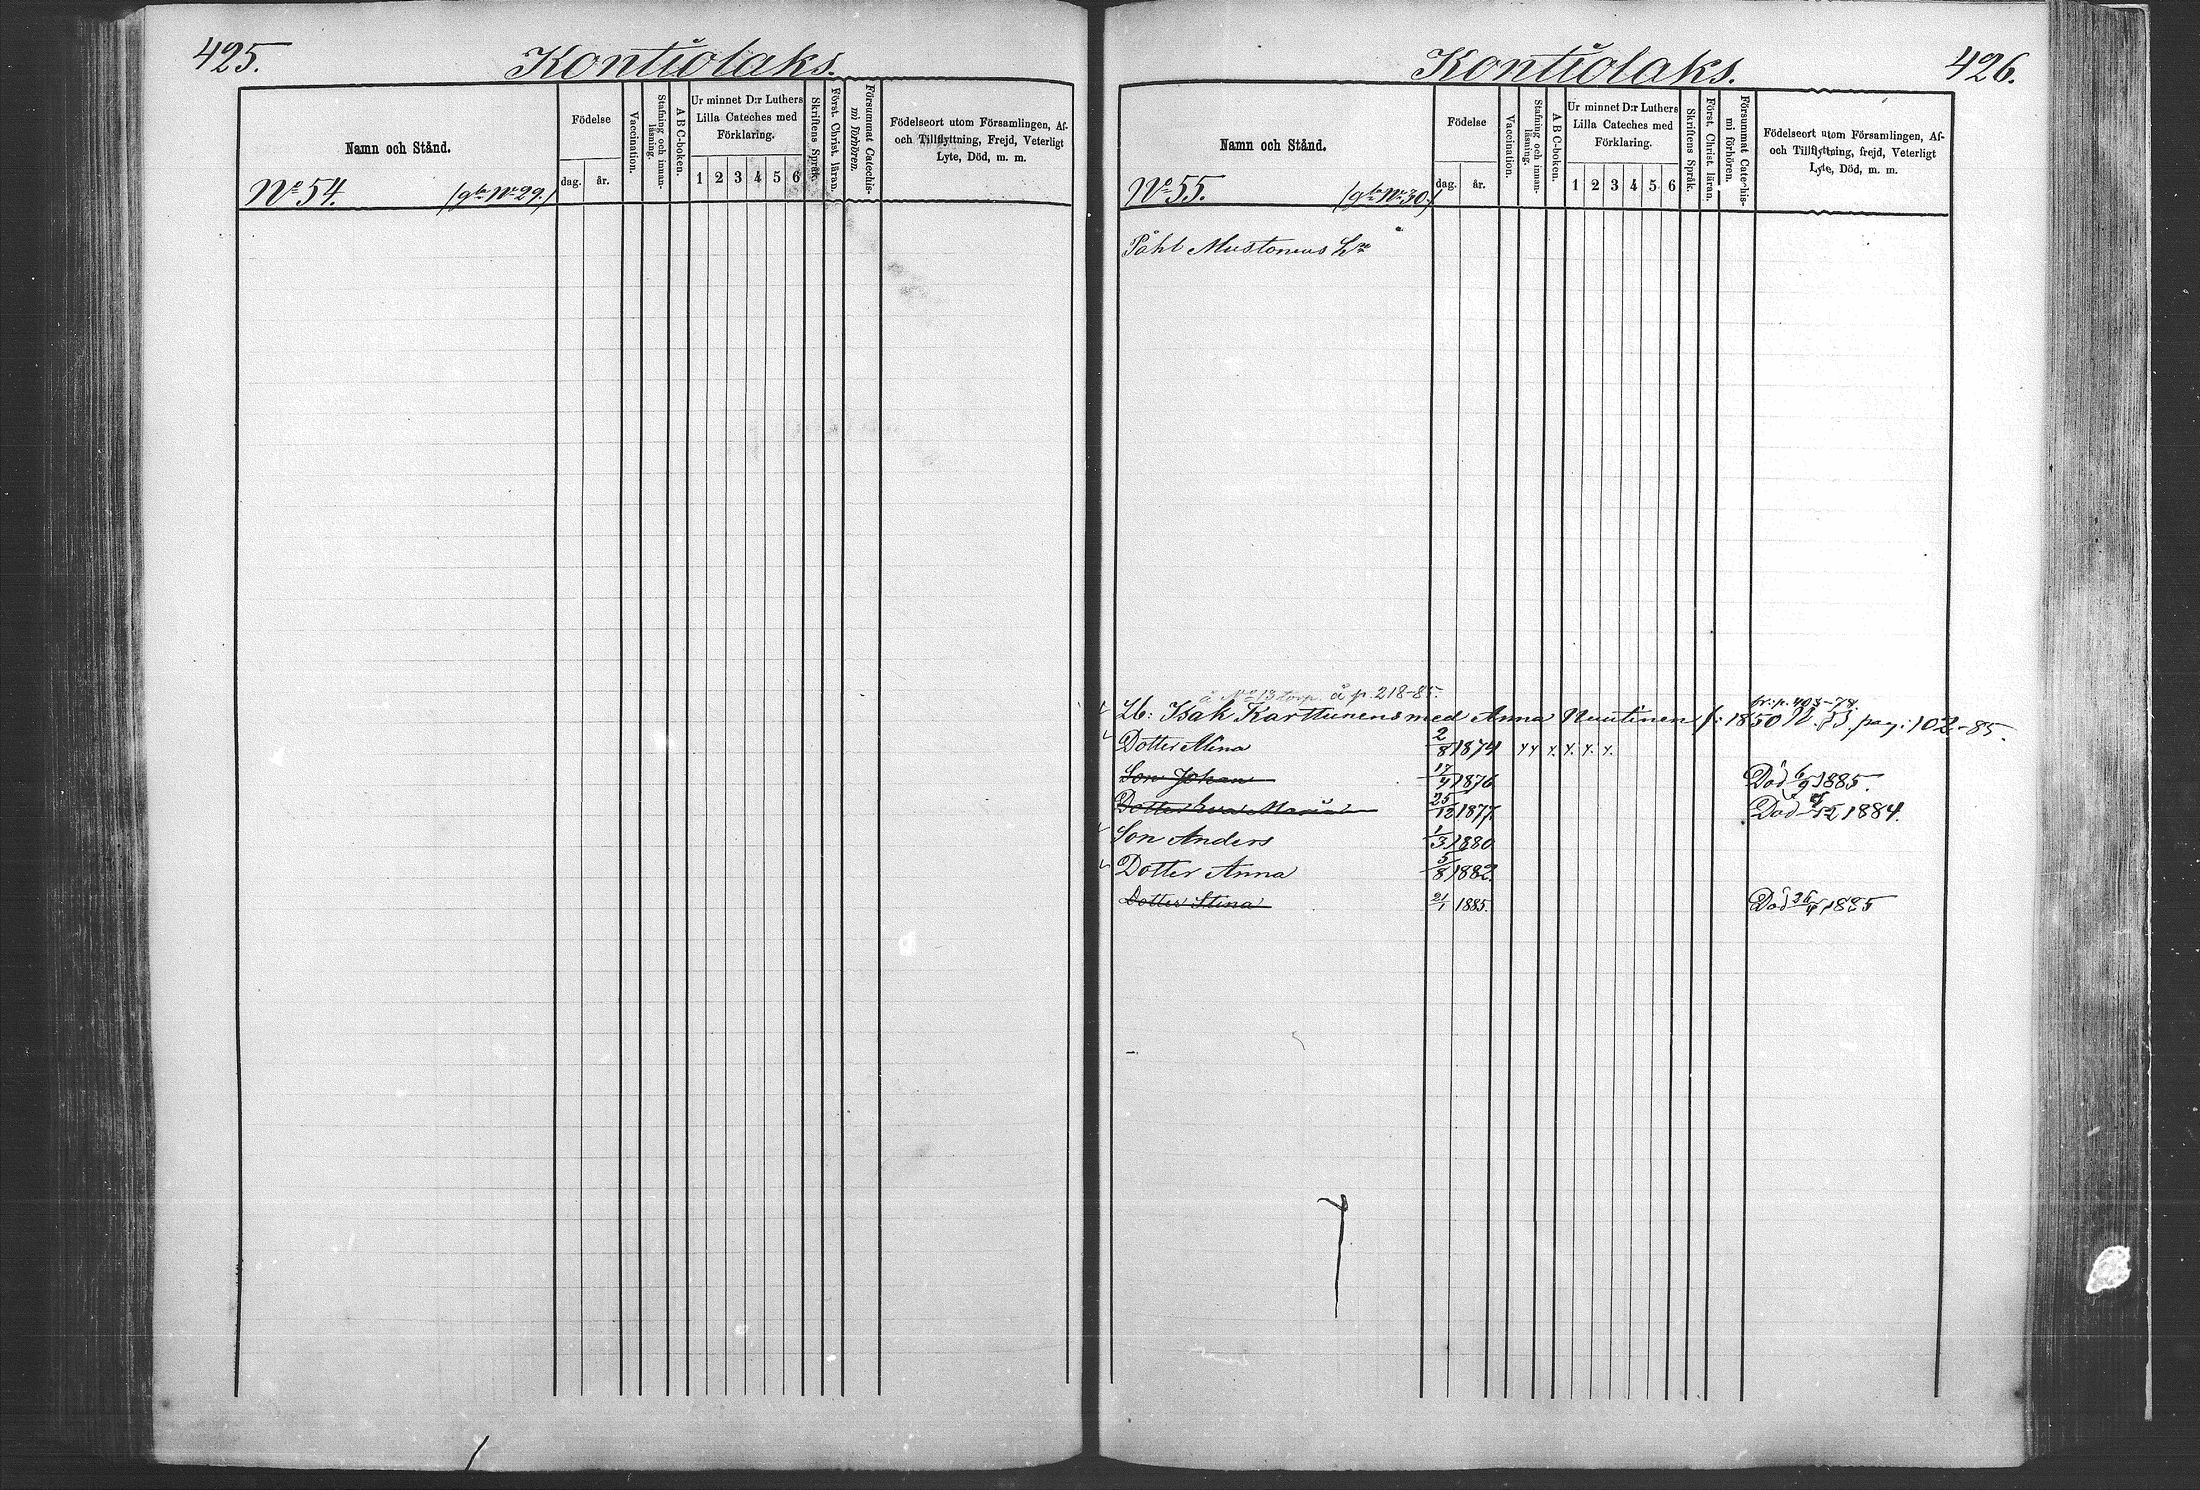 425.
Kontiolaks.
Namn och Stånd.
Födelse
dag.
år.
Vaccination.
Stafning och innan-
läsning.
A B C-boken.
Ur minnet D:r Luthers
Lilla Cateches med
Förklaring.
1 2 3 4 5 6
Skriftens Språk.
Först. Christ. läran.
Försummat Catechis-
mi förhören.
Födelseort utom Församlingen, Af-
och Tillflyttning, Frejd, Veterligt
Lyte, Död, m. m.
No 54. (gla No 29.)
Kontiolaks.
426.
Namn och Stånd.
Födelse
dag.
år.
Vaccination.
Stafning och innan-
läsning.
A B C-boken.
Ur minnet D:r Luthers
Lilla Cateches med
Förklaring.
1 2 3 4 5 6
Skriftens Språk.
Först. Christ. läran.
Försummat Catechis-
mi förhören.
Födelseort utom Församlingen, Af-
och Tillflyttning, frejd, Veterligt
Lyte, Död, m. m.
No 55. (gla No 30.)
Påhl Mustonens
å No 13 torp. å p. 218-85. fr: p. 403-78.
Lb: Isak Karttunens med Anna Nuutinen f: 1850 pag: 102-85.
Dotter Mina 2/8 1874
Son Johan 17/4 1876 Död 6/9 1885.
Dotter Eva Maria 25/12 1877. Död /12 1884.
Son Anders 1/3 1880
Dotter Anna 5/8 1882.
Dotter Stina 21/1 1885. Död 26/4 1885